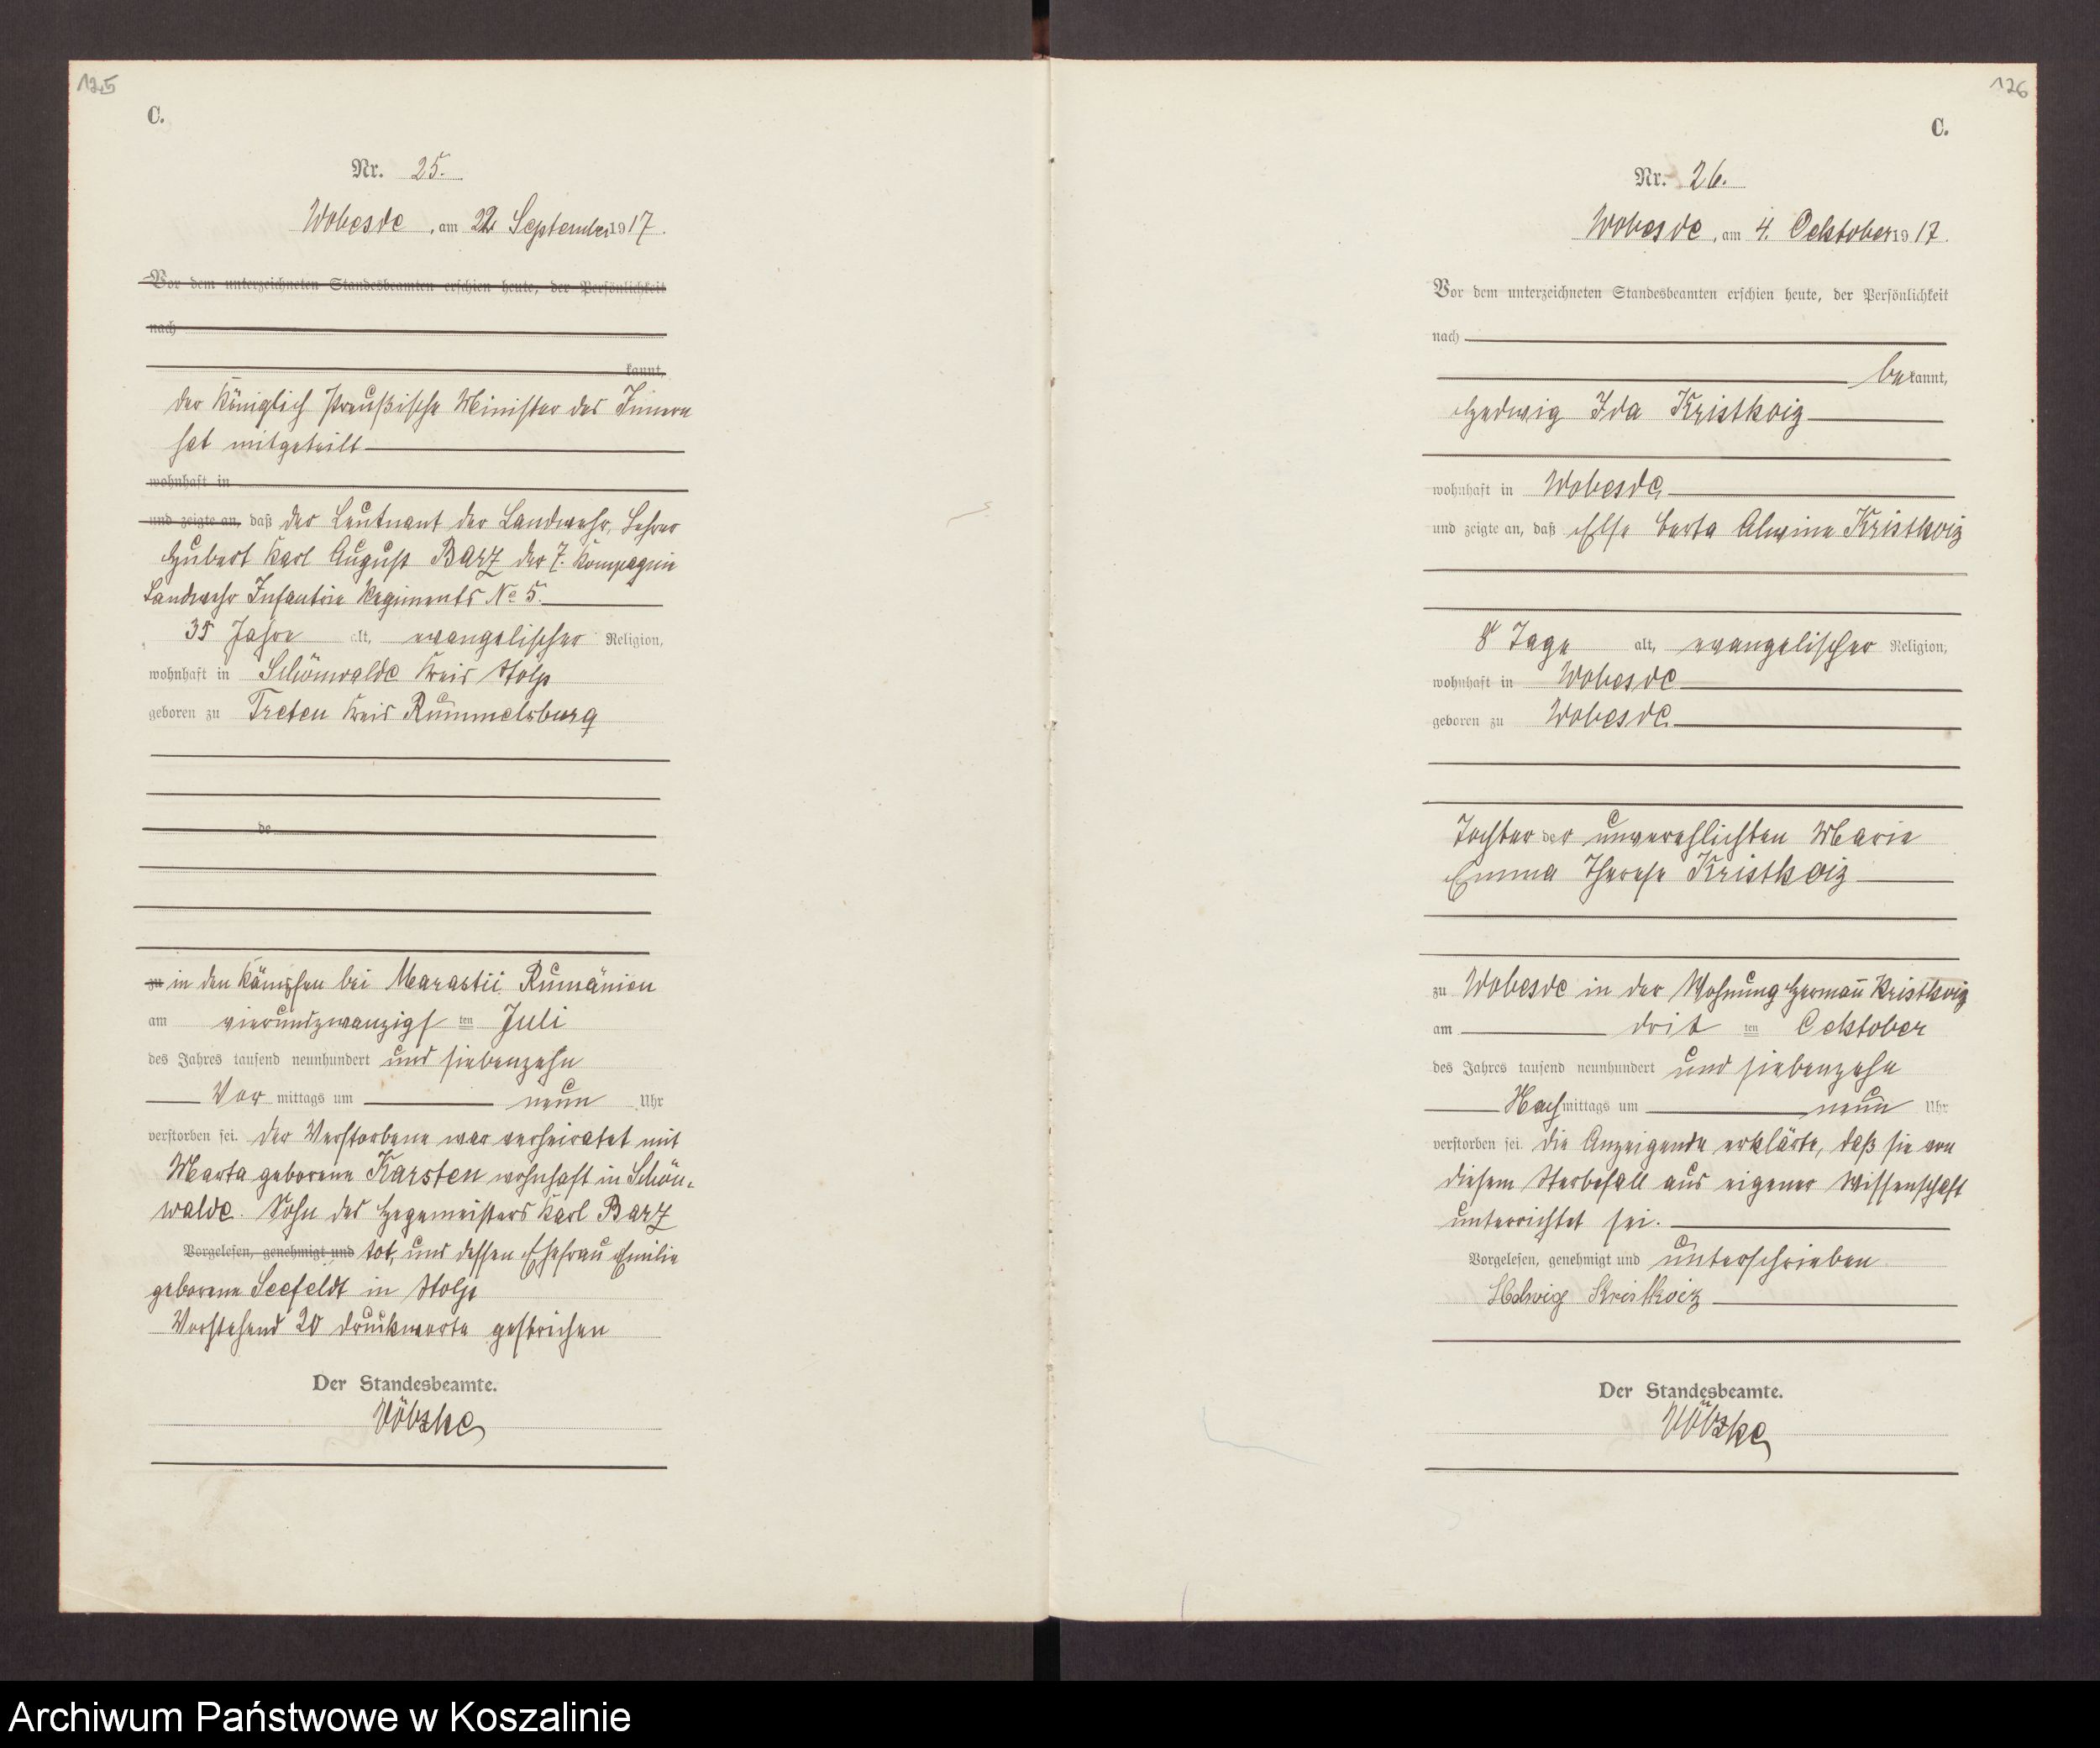 125
C.
Nr. 25.
Wobesde, am 22 September 1917.
Vor dem unterzeichneten Standesbeamten erschien heute, der Persönlichkeit
nach
kannt,
der Königlich Preußische Minister des Innern
hat mitgeteilt
wohnhaft in
und zeigte an, daß der Leutnant der Landwehr, Lehrer
Hubert Karl August Barz der 7. Kompagnie
Landwehr Infantrie Regiments No 5.
35 Jahre alt, evangelischer Religion,
wohnhaft in Schönwalde Kreis Stolp
geboren zu Treten Kreis Rummelsburg
de
zu in den Kämpfen bei Marastii Rumänien
am vierundzwanzigsten Juli
des Jahres tausend neunhundert und siebenzehn
Vor mittags um neun Uhr
verstorben sei. Der Verstorbene war verheiratet mit
Marta geborene Karsten wohnhaft in Schön-
walde. Sohn des Hegemeisters Karl Barz
Vorgelesen, genehmigt und tot, und dessen Ehefrau Emilie
geborene Seefeldt in Stolp
Vorstehend 20 Druckworte gestrichen
Der Standesbeamte.
126
C.
Nr. 26.
Wobesde, am 4. Ocktober 1917.
Vor dem unterzeichneten Standesbeamten erschien heute, der Persönlichkeit
nach
bekannt,
Hedwig Ida Kristkoiz
wohnhaft in Wobesde
und zeigte an, daß Else Berta Alwine Kristkoiz
8 Tage alt, evangelischer Religion,
wohnhaft in Wobesde
geboren zu Wobesde
Tochter der unverehlichten Marie
Emma Therese Kristkoiz
zu Wobesde in der Wohnung Hermañ Kristkoiz
am dritten Ocktober
des Jahres tausend neunhundert und siebenzehn
Nachmittags um neun Uhr
verstorben sei. Die Anzeigende erklärte, daß sie von
diesem Sterbefall aus eigener Wissenschaft
unterrichtet sei.
Vorgelesen, genehmigt und unterschrieben
Hedwig Kristkoiz
Der Standesbeamte.
Archiwum Państwowe w Koszalinie